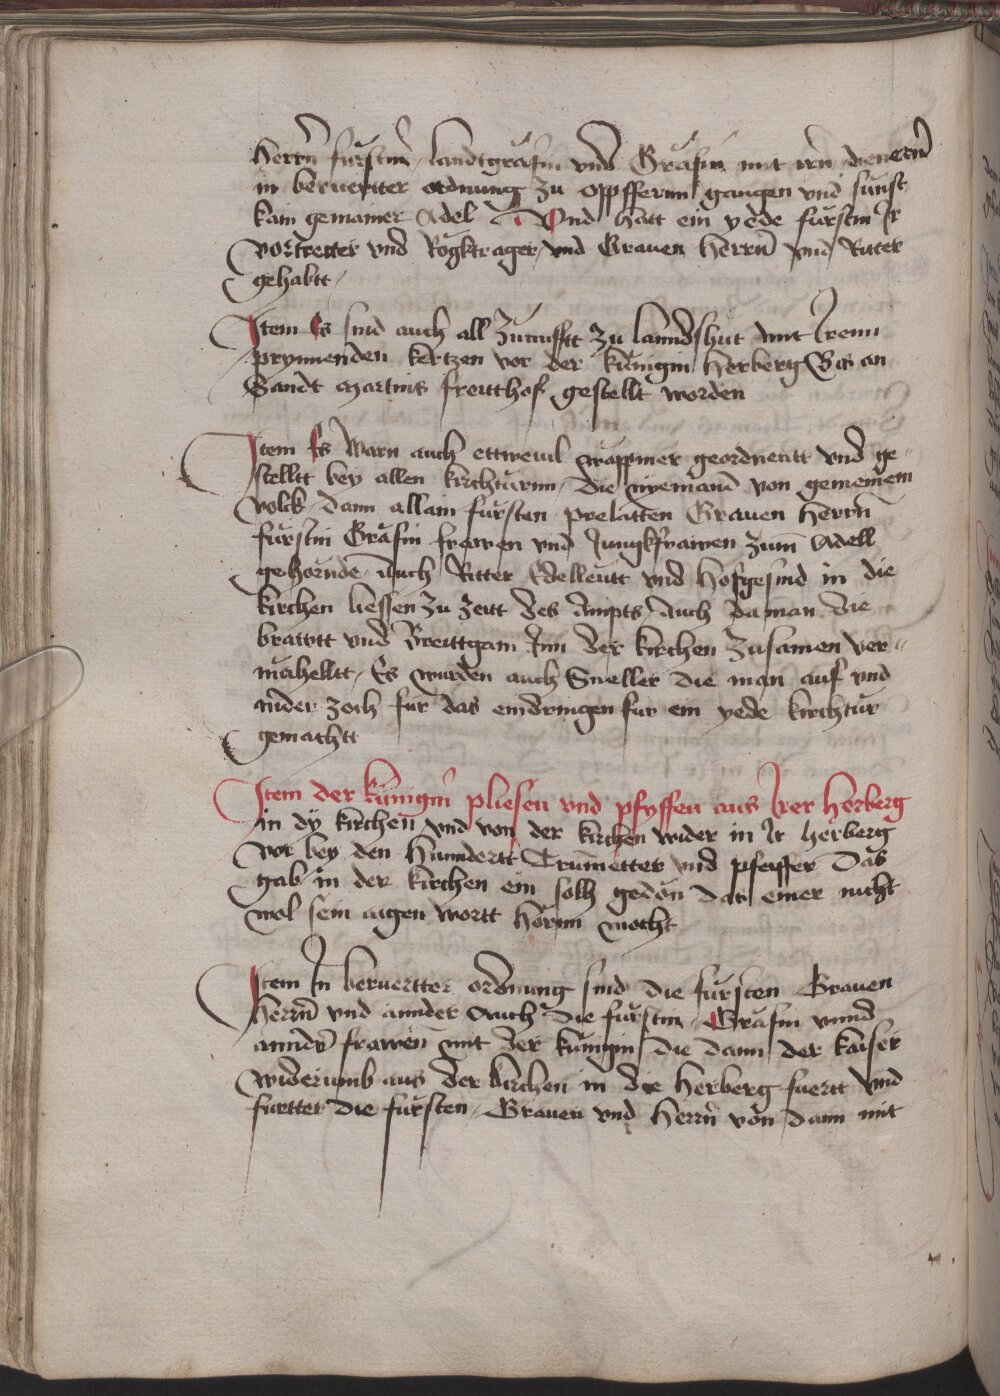 herrn fürstin landtgräfin vnd Gräfin mit irn dienern
in beruertter ordnung zu oppffernn gangen vnd sunst
kain gemainer Adel Vnd hatt ein yede fürstin Ir
vortretter vnd Rogktrager vnd Grauen herrn vnd Ritter
gehabtt
Item Es sind auch all zunfftt zu lanndshut mit Irenn
prynnenden kertzen vor der künigin herberg Bis an
Sandt Martins freitthof gestellt worden
Item Es warn auch ettweuil wappner geordnentt vnd ge-
stelltt bey allen kirchturnn die nyemand von gemeinem
volck dann allain fürsten prelatten Grauen herrn
fürstin Gräfin frawen vnd Jungkfrawen zum Adell
gehörnde Auch Ritter Edelleutt vnd hofgesind in die
kirchen liessen zu zeitt des Ampts Auch da man die
brawtt vnd Breittgam Inn der kirchen zusamen ver-
mahelltt Es wurden auch Sneller die man auf vnd
nider zoch für das eindringen für ein yede kirchtür
gemachtt
Item der künigin pliesen vnd pfyffen aus Irer herberg
in dy kirchen vnd von der kirchen wider in Ir herberg
vor bey den hunndertt Trumetter vnd pfeiffer Das
gab in der kirchen ein solh gedön das einer nicht
wol sein aigen wortt hörnn mocht
Item In beruertter ordnung sind die fürsten Grauen
herrn vnd annder Auch die fürstin Gräfin vnnd
anndr frawen mit der künigin die dann der kaiser
widerumb aus der kirchen in die herberg fuertt vnd
furtter die fürsten Grauen vnd herrn von dann mit